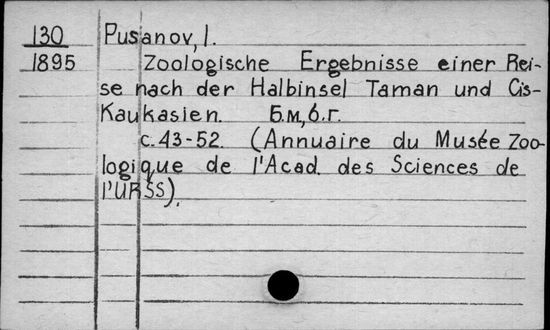 130 Pusanov, I.
1895 Zoologische Ergebnisse einer Rei-
se nach der Halbinsel Taman und Cis-
Kaukasien. Б.м, б.г.
с. 43-52. (Annuaire du Musée Zoo-
logique de l'Acad. des Sciences de
l'URSS).